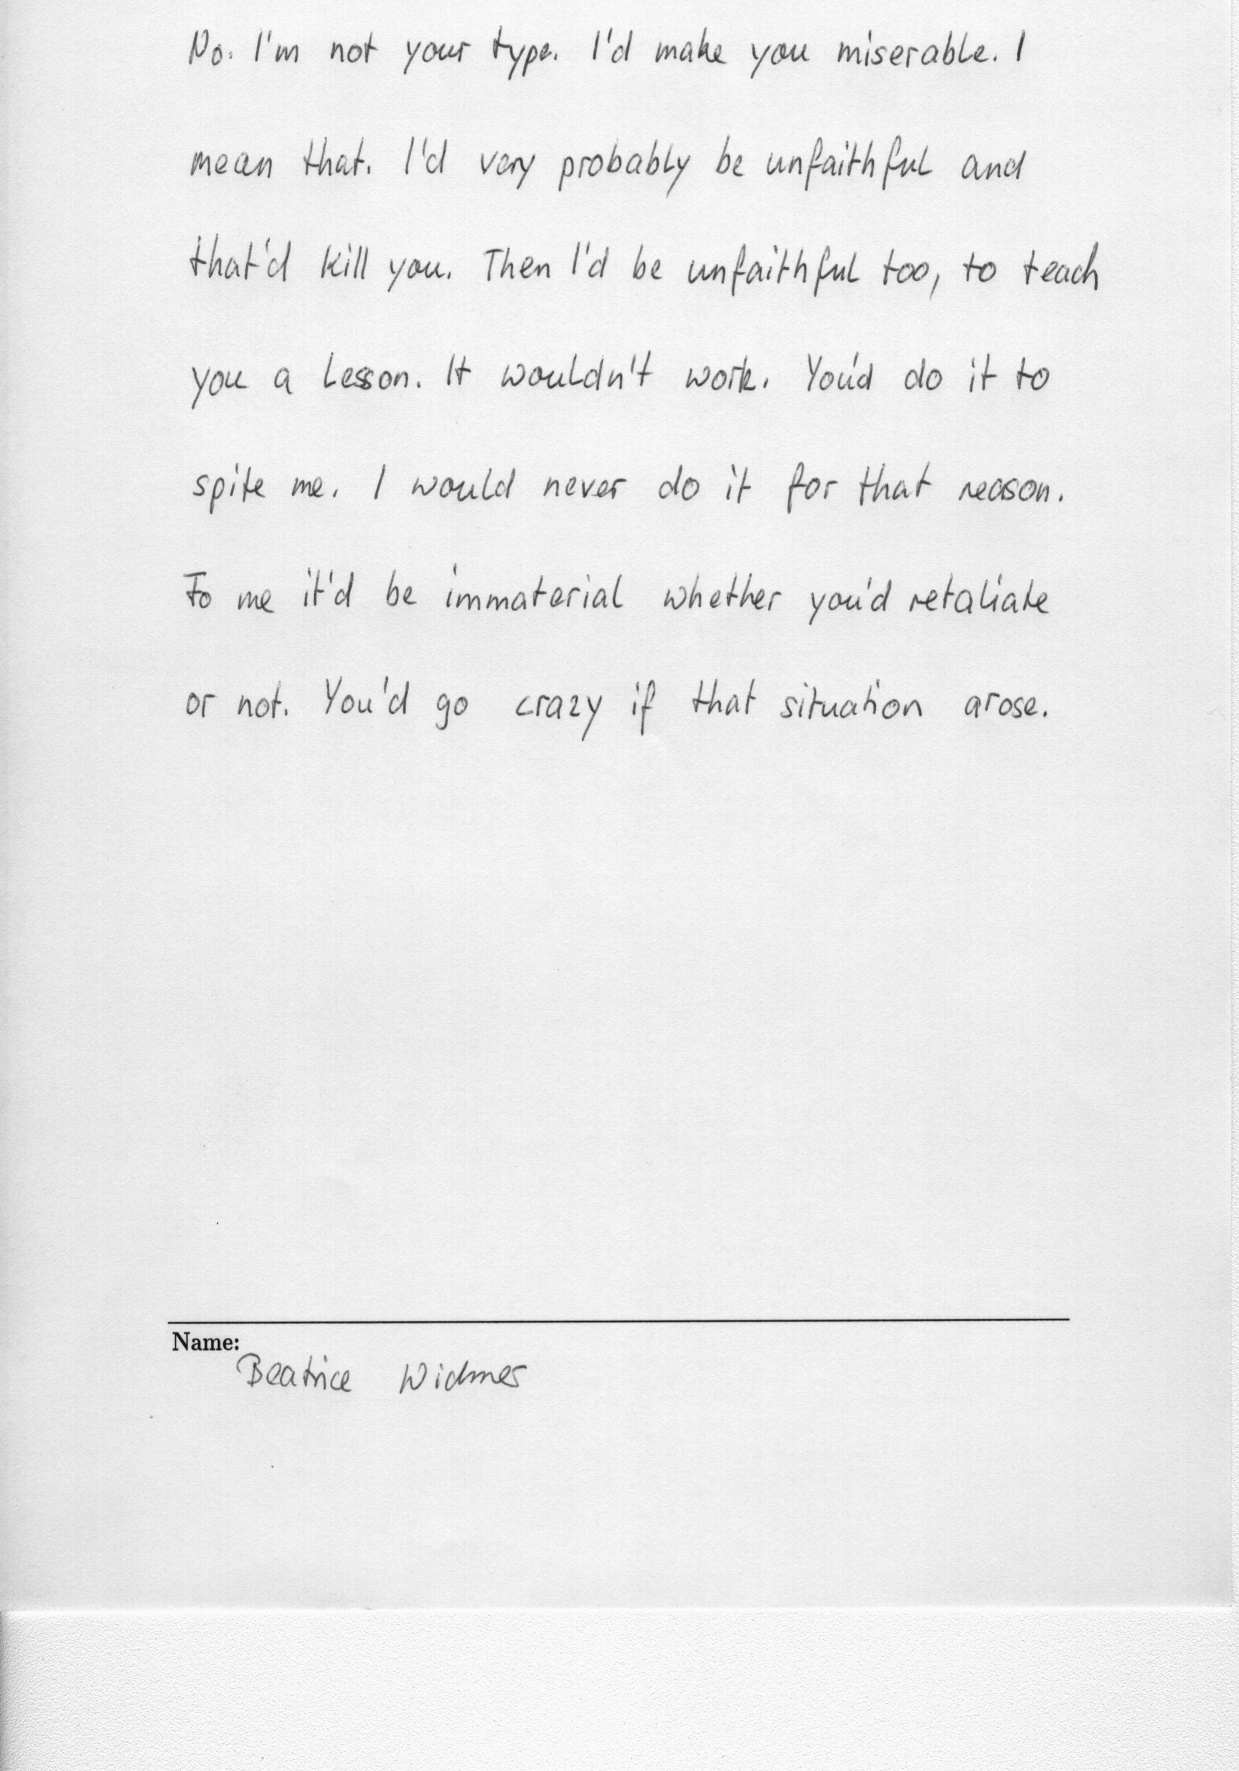 No. I'm not your type. I'd make you miserable. I
mean that. I'd very probably be unfaithful and
that'd kill you. Then I'd be unfaithful too, to teach
you a lesson. It wouldn't work. You'd do it to
spite me. I would never do it for that reason.
To me it'd be immaterial whether you'd retaliate
or not. You'd go crazy if that situation arose.
Name:
Beatrice Widmer